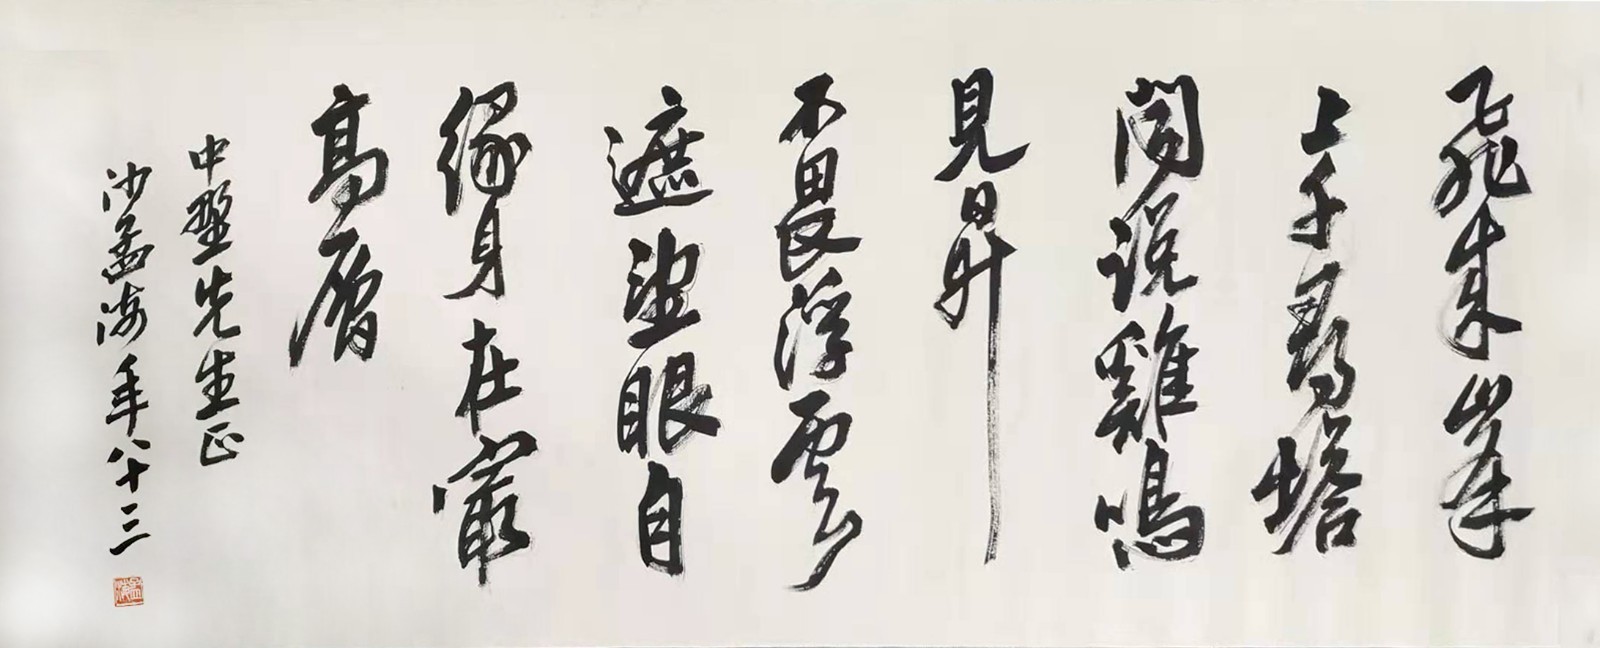 飛來峯
上千尋塔
聞說雞鳴
見日昇
不畏浮雲
遮望眼自
緣身在最
高層
中野先生正
沙孟海年八十三